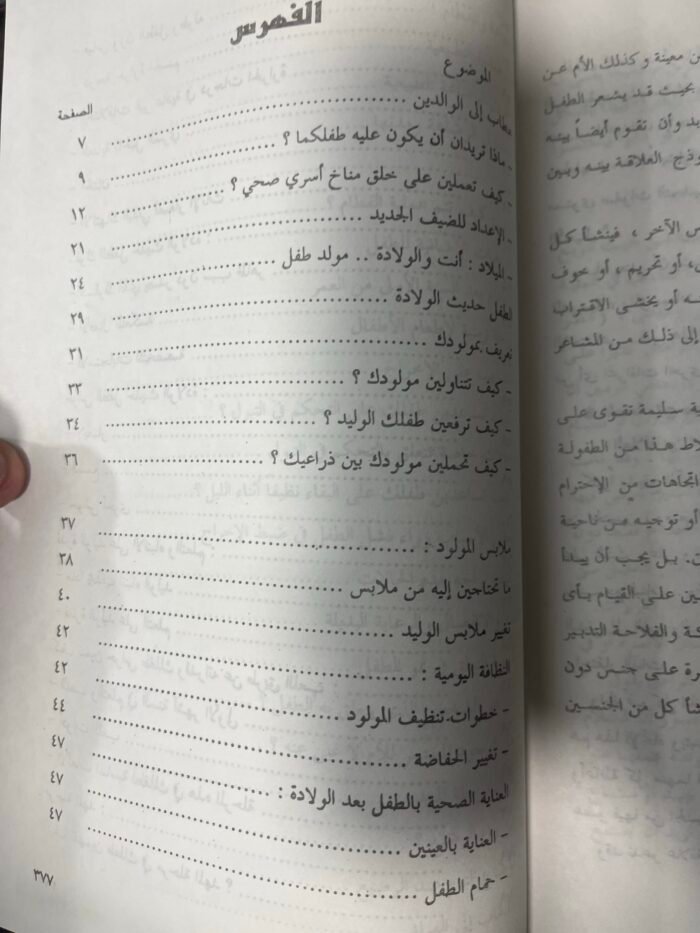 الفهرس
الموضوع الصفحة
خطاب إلى الوالدين ........ ٧
- ماذا تريدان أن يكون عليه طفلكما ؟ ........ ٩
- كيف تعملين على خلق مناخ أسري صحي ؟ ........ ١٢
- الإعداد للضيف الجديد ........ ٢١
- الميلاد : أنت والولادة .. مولد طفل ........ ٢٤
الطفل حديث الولادة ........ ٢٩
تعريف بمولودك ........ ٣١
- كيف تتناولين مولودك ؟ ........ ٣٣
- كيف ترفعين طفلك الوليد ؟ ........ ٣٤
- كيف تحملين مولودك بين ذراعيك ؟ ........ ٣٦
ملابس المولود : ........ ٣٧
ما تحتاجين إليه من ملابس ........ ٣٨
تغيير ملابس الوليد ........ ٤٠
النظافة اليومية : ........ ٤٢
- خطوات تنظيف المولود ........ ٤٢
- تغيير الحفاضة ........ ٤٤
العناية الصحية بالطفل بعد الولادة : ........ ٤٧
- العناية بالعينين ........ ٤٧
- حمام الطفل ........ ٤٧
٣٧٧
معينة وكذلك الأم عن
بحيث قد يشعر الطفل
وأن تقوم أيضاً بينه
العلاقة بينه وبين
الآخر ، فينشأ كل
أو تحريم ، أو خوف
أو يخشى الاقتراب
إلى ذلك من المشاعر
سليمة تقوى على
هذا من الطفولة
اتجاهات من الاحترام
أو توجيه من ناحية
بل يجب أن يبدأ
على القيام بأى
والفلاحة التدبير
على جنس دون
كل من الجنسين